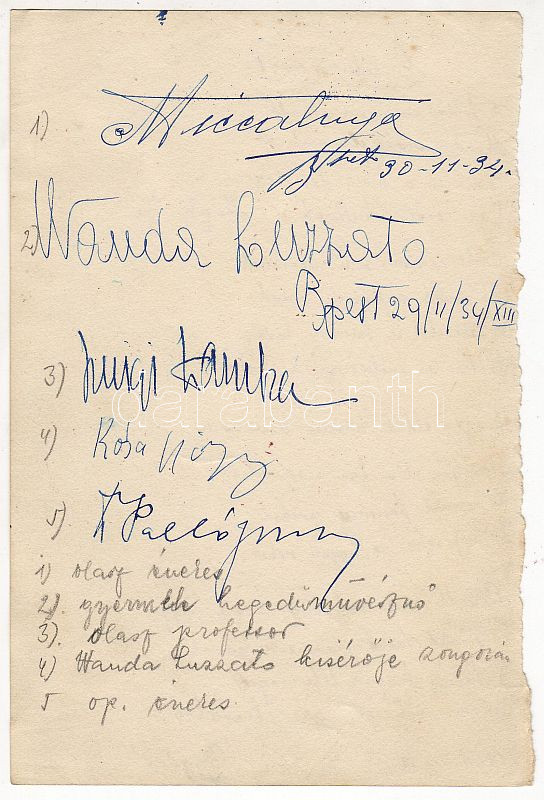 1)
30-11-34.
2) Wanda Luzzato
Bpest 29/11/34/XIII
3) Luigi
4) Kósa György
5)
darabanth
1) olasz énekes
2). gyermek hegedűművésznő
3). olasz professor
4) Wanda Luzzato kisérője zongorán
5 op. énekes.